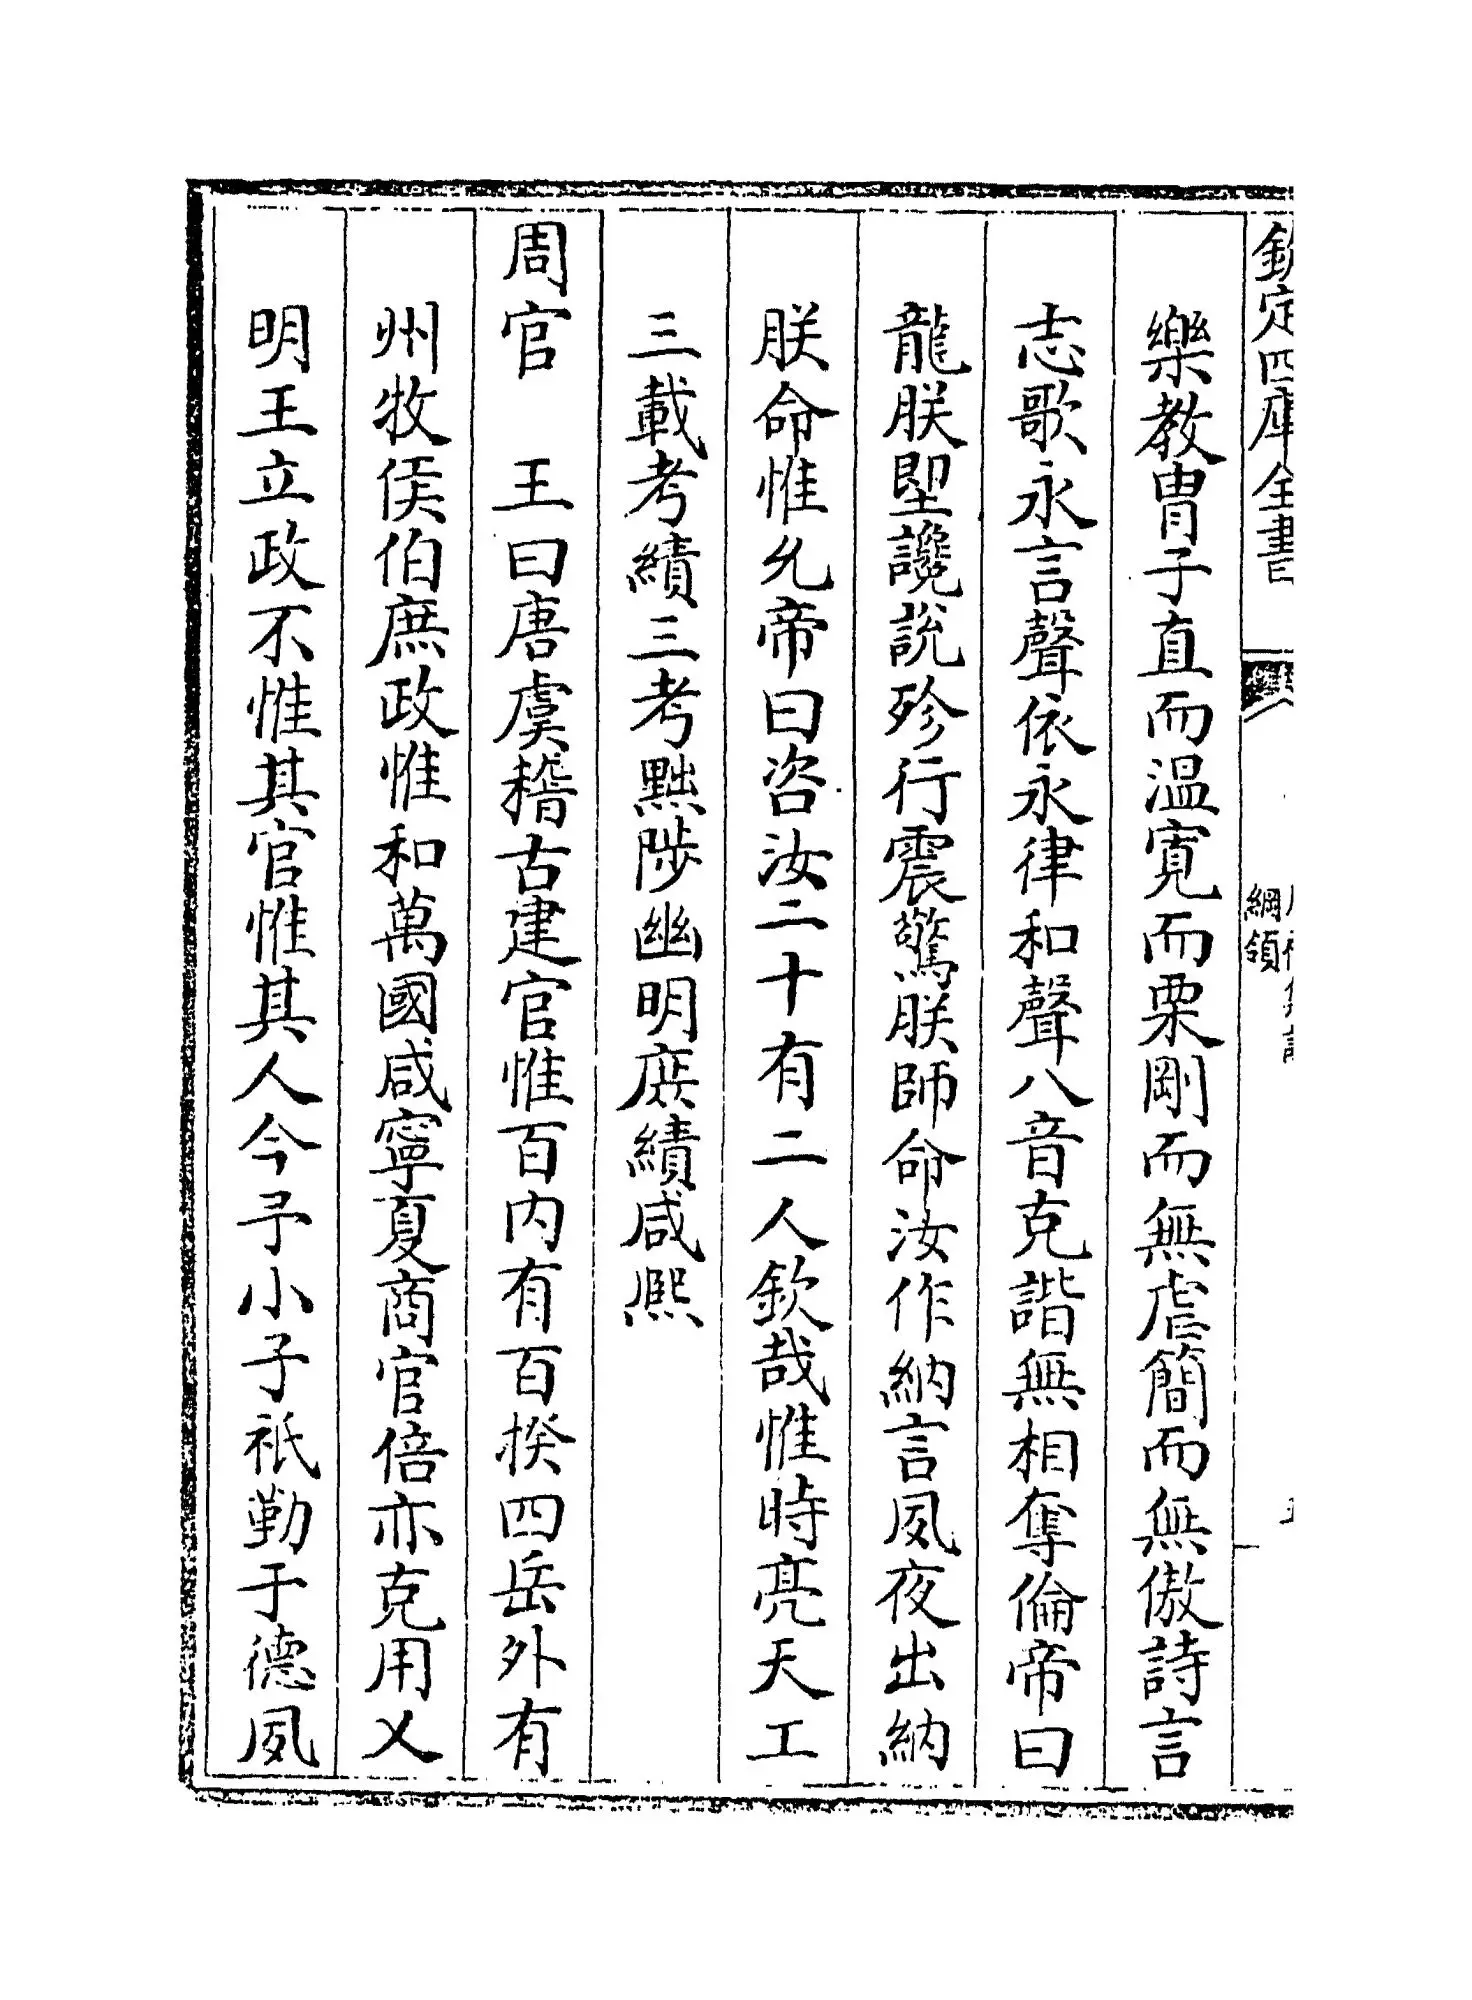 欽定四庫全書
綱領
樂教胄子直而温寛而栗剛而無虐簡而無傲詩言
志歌永言聲依永律和聲八音克諧無相奪倫帝曰
龍朕堲讒說殄行震驚朕師命汝作納言夙夜出納
朕命惟允帝曰咨汝二十有二人欽哉惟時亮天工
三載考績三考黜陟幽明庶績咸熙
周官　王曰唐虞稽古建官惟百内有百揆四岳外有
州牧侯伯庶政惟和萬國咸寧夏商官倍亦克用乂
明王立政不惟其官惟其人今予小子祇勤于德夙